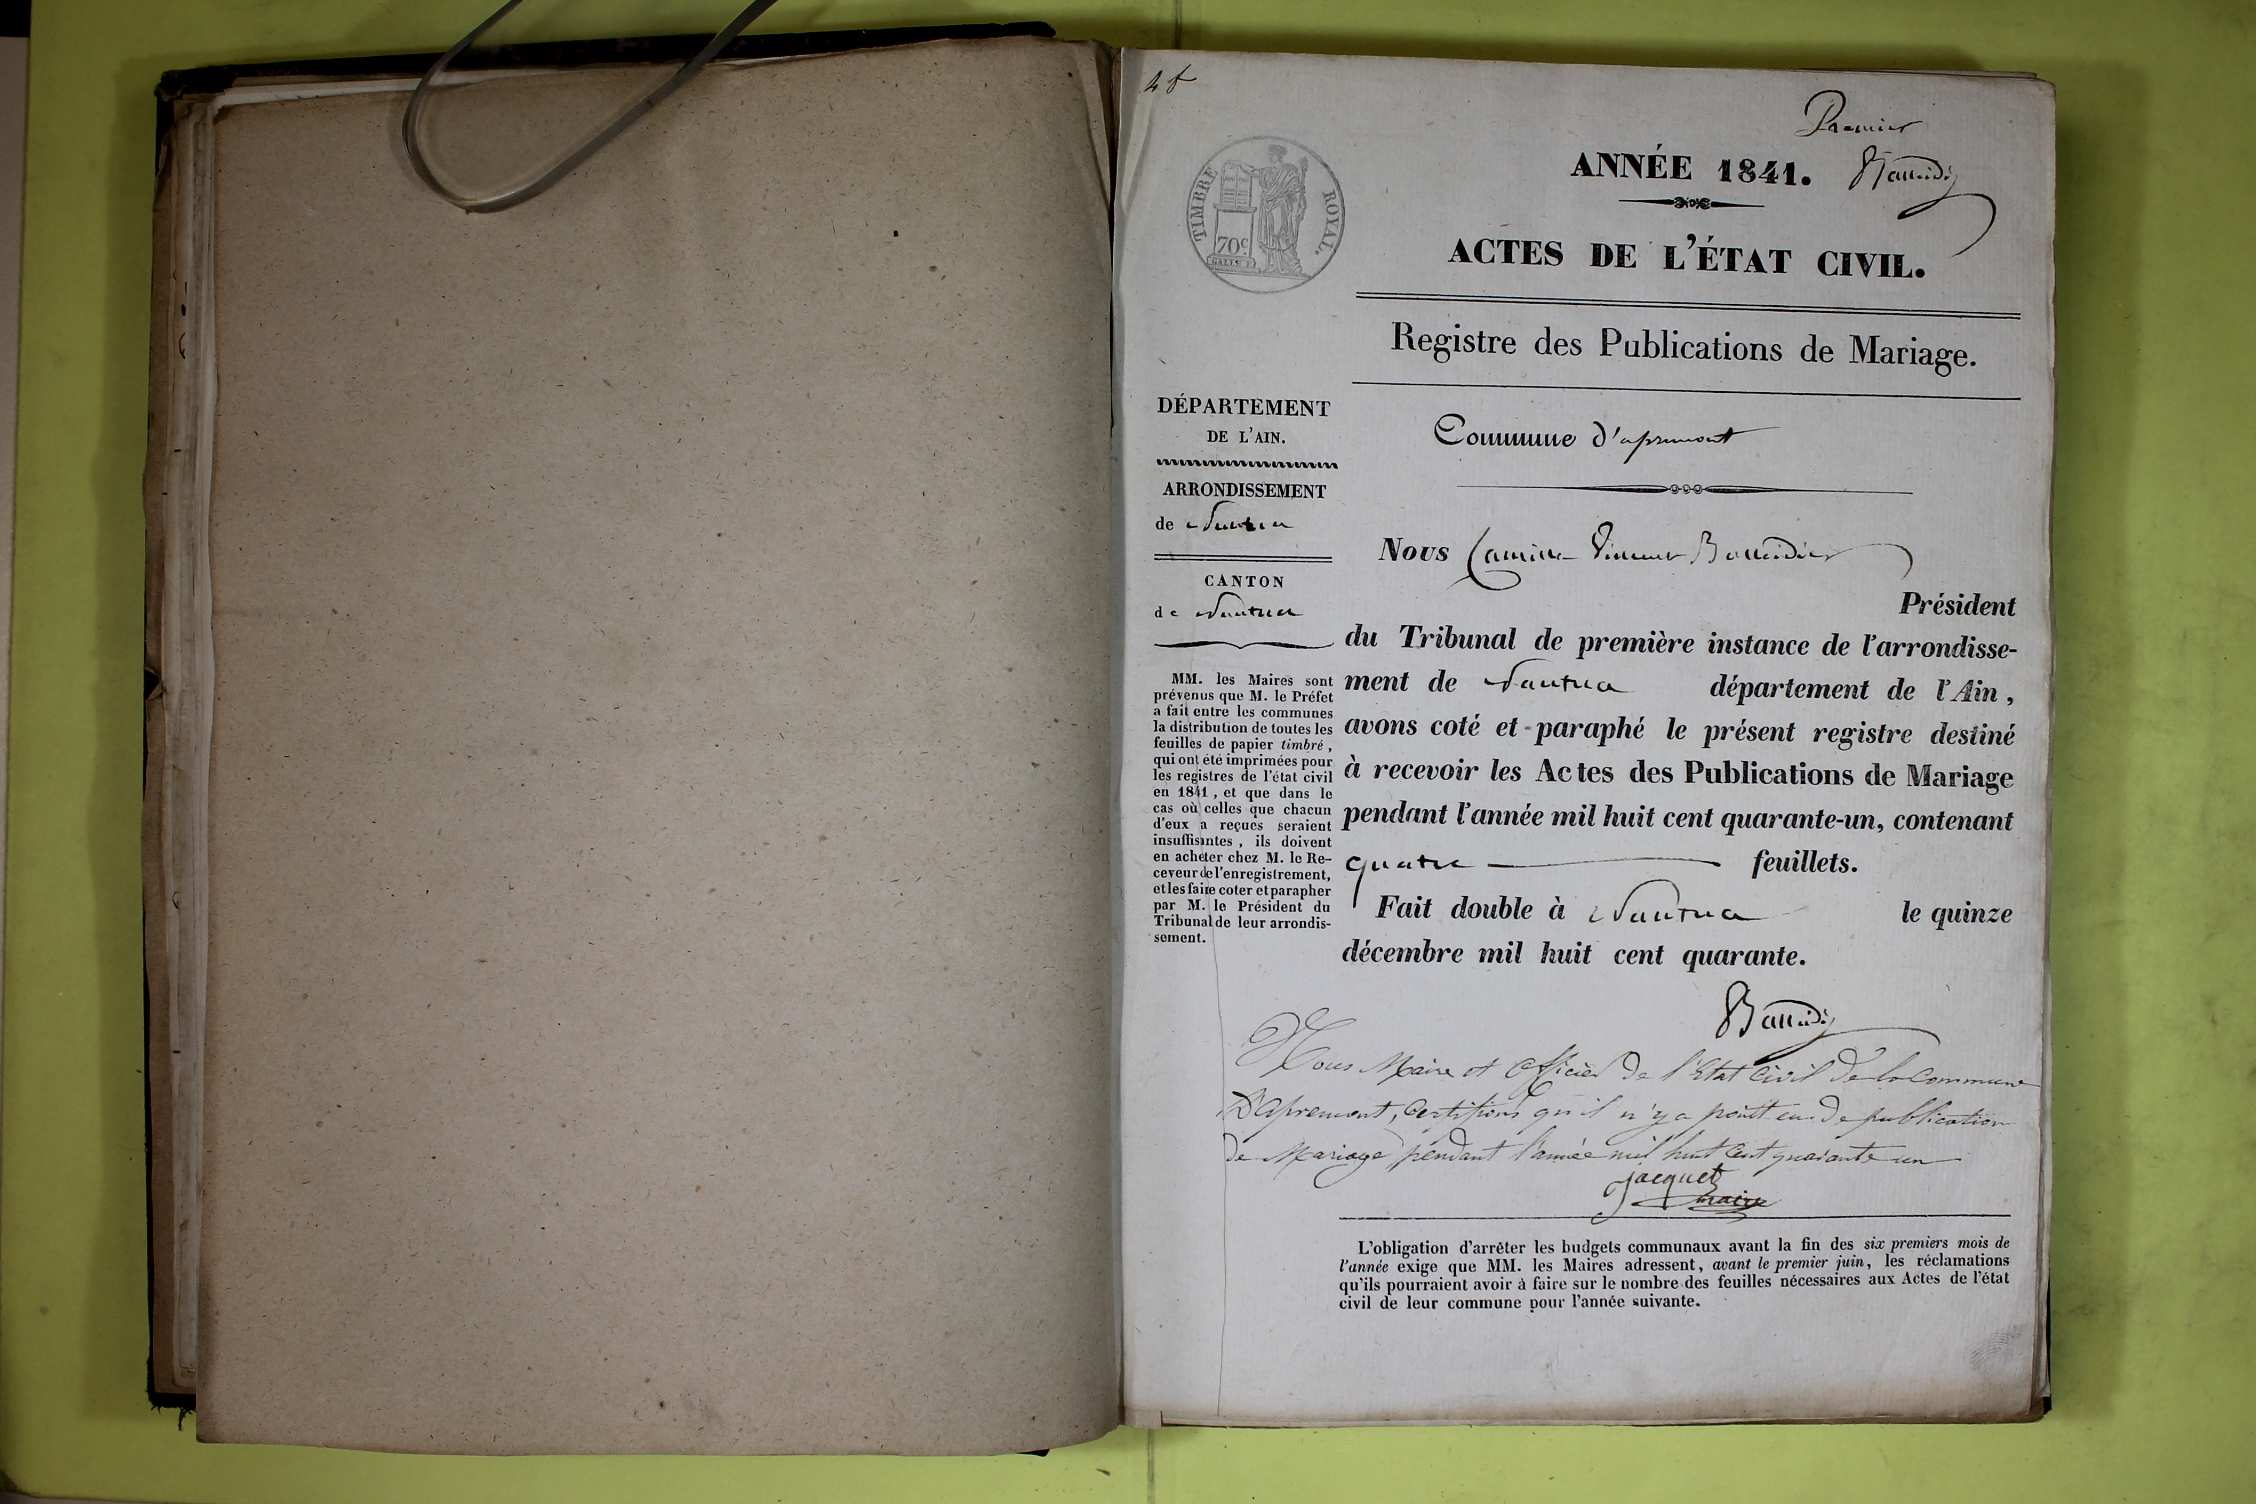 4 f
Premier
TIMBRE ROYAL.
70c
ANNÉE 1841.
ACTES DE L'ÉTAT CIVIL.
Registre des Publications de Mariage.
DÉPARTEMENT
DE L'AIN.
ARRONDISSEMENT
de Nantua
CANTON
de Nantua
MM. les Maires sont
prévenus que M. le Préfet
a fait entre les communes
la distribution de toutes les
feuilles de papier timbré,
qui ont été imprimées pour
les registres de l'état civil
en 1841, et que dans le
cas où celles que chacun
d'eux a reçues seraient
insuffisantes, ils doivent
en acheter chez M. le Re-
ceveur de l'enregistrement,
et les faire coter et parapher
par M. le Président du
Tribunal de leur arrondis-
sement.
Commune d'apremont
Nous Camille Vincent
Président
du Tribunal de première instance de l'arrondisse-
ment de Nantua département de l'Ain,
avons coté et paraphé le présent registre destiné
à recevoir les Actes des Publications de Mariage
pendant l'année mil huit cent quarante-un, contenant
quatre feuillets.
Fait double à Nantua le quinze
décembre mil huit cent quarante.
Nous Maire et Officier de l'Etat Civil de la Commune
D'apremont, Certifions qu'il n'y a point eu de publication
de Mariage pendant l'année mil huit Cent quarante un
jacquet
maire
L'obligation d'arrêter les budgets communaux avant la fin des six premiers mois de
l'année exige que MM. les Maires adressent, avant le premier juin, les réclamations
qu'ils pourraient avoir à faire sur le nombre des feuilles nécessaires aux Actes de l'état
civil de leur commune pour l'année suivante.